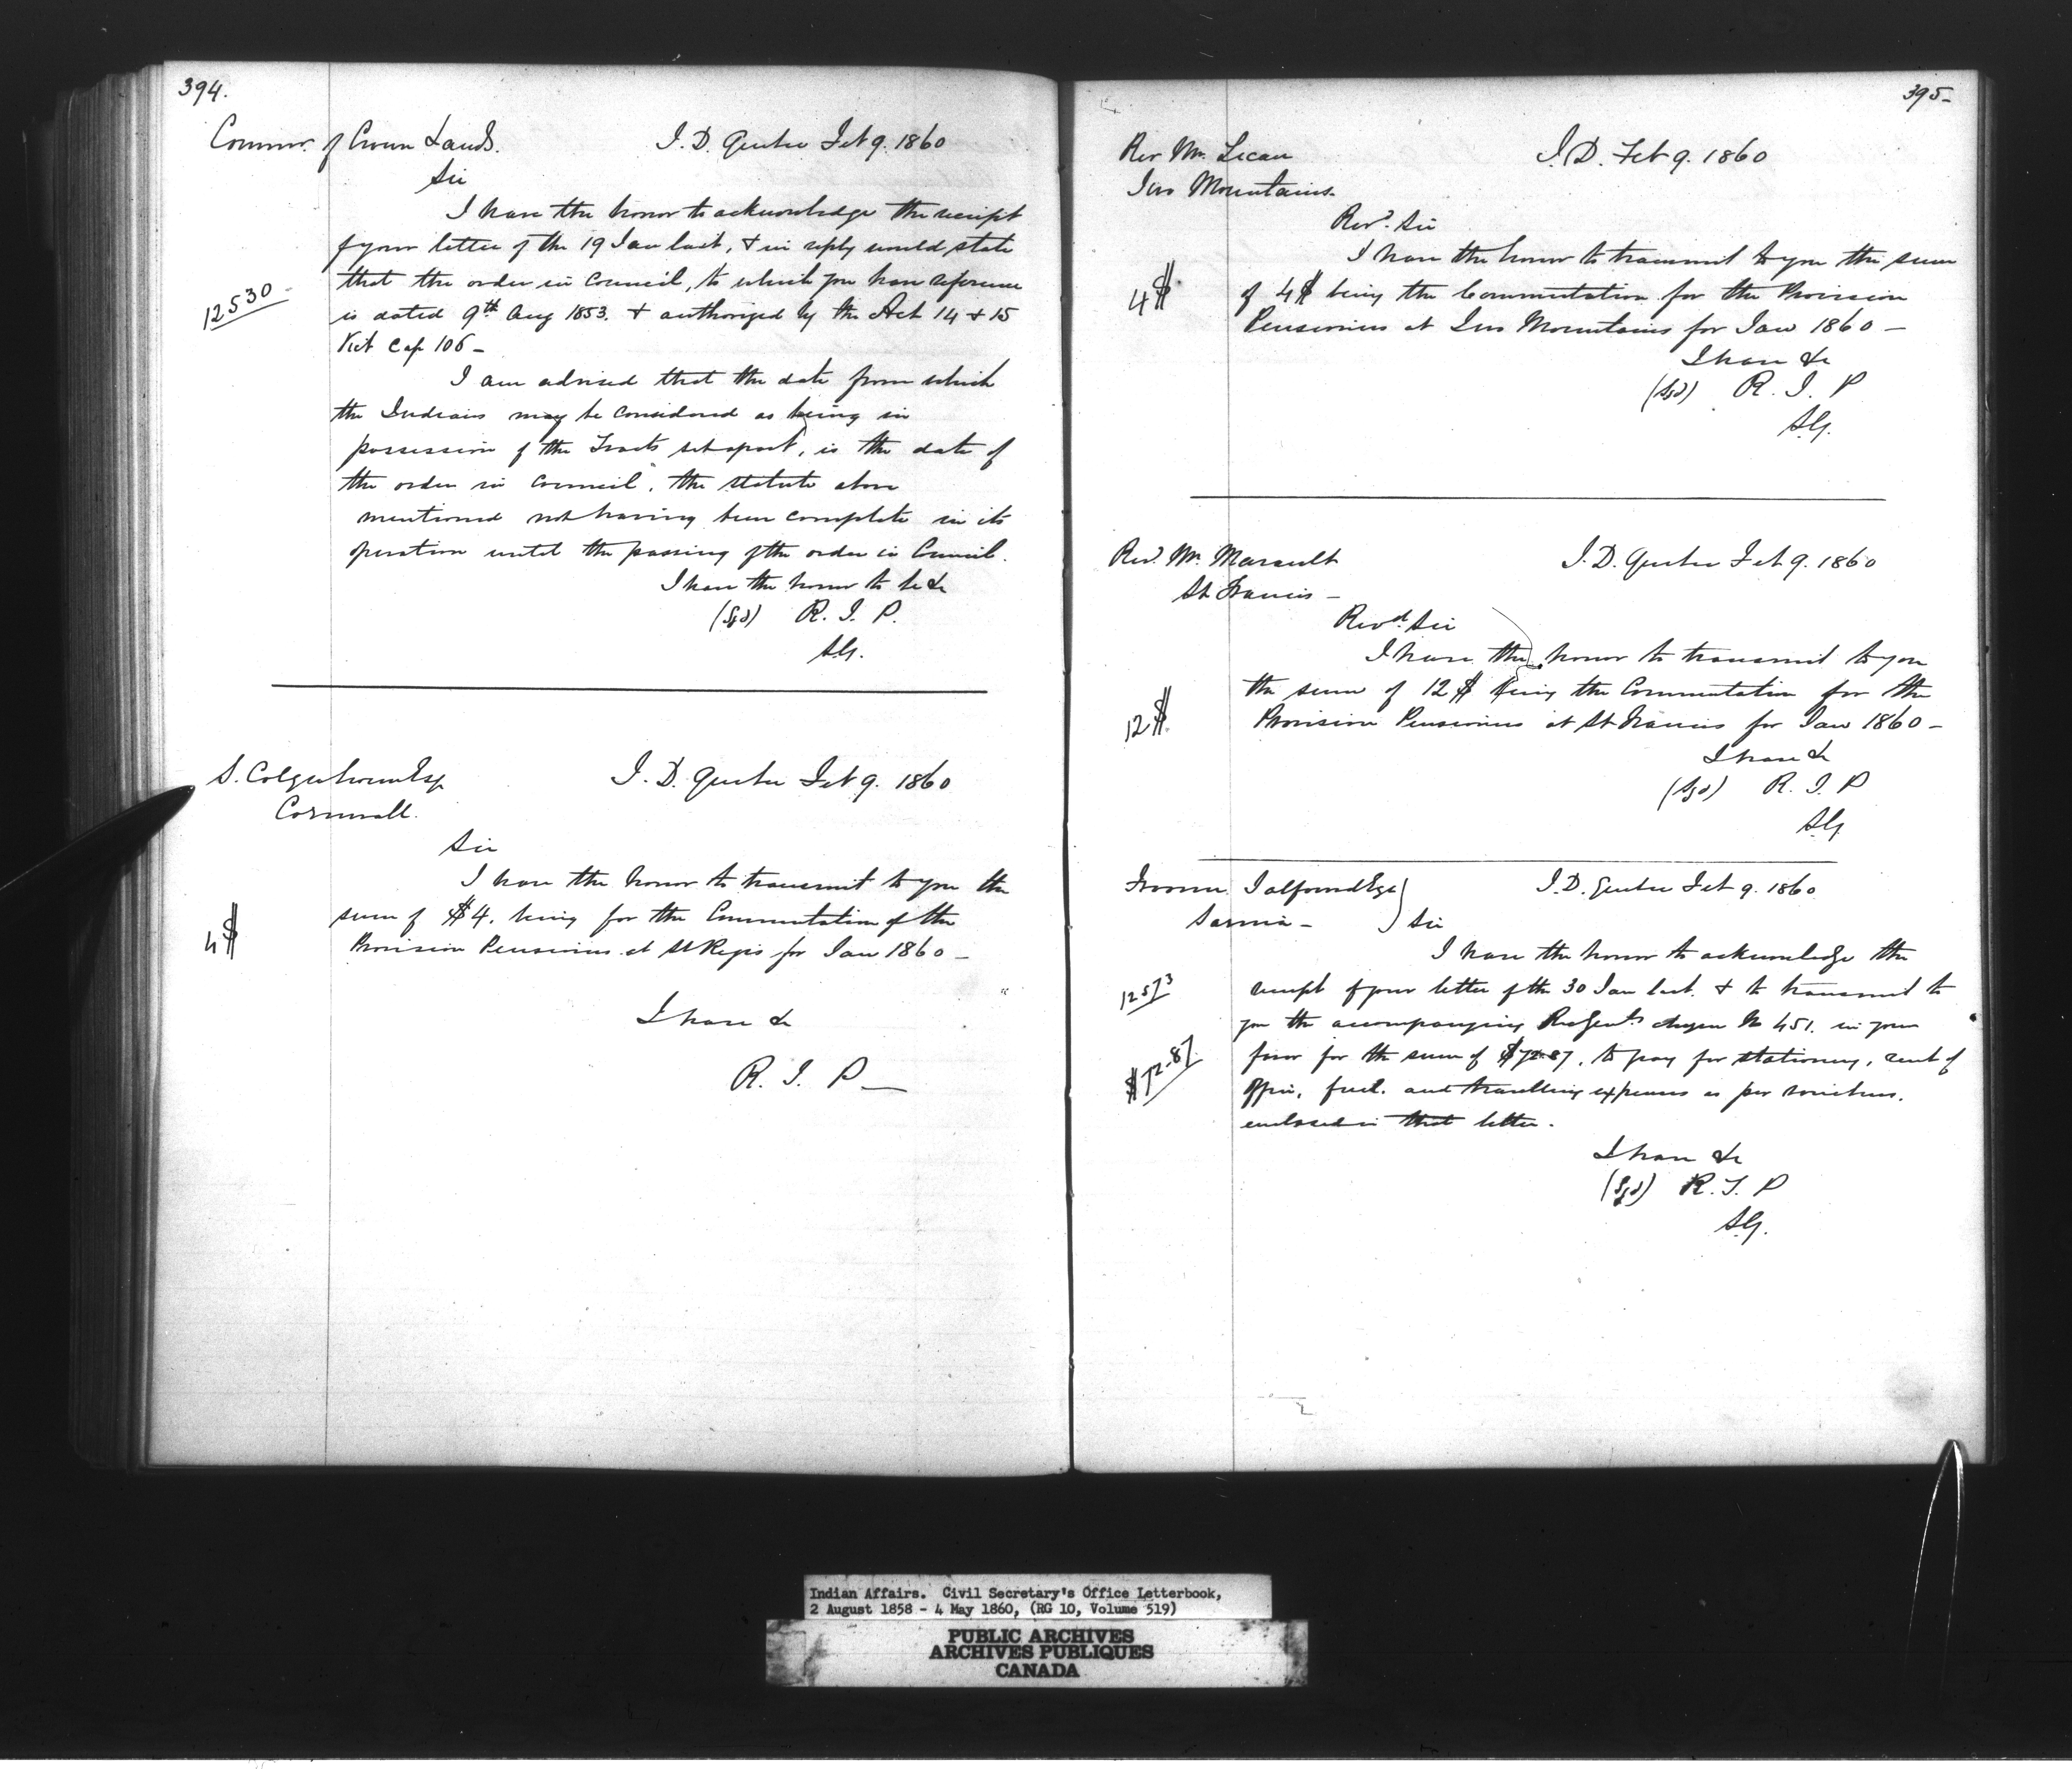 394.
Commr. of Crown Lands.
I. D. Quebec Feb 9. 1860
Sir
I have the honor to acknowledge the receipt
of your letter of the 19 Jan last, & in reply would state
12530
that the order in Council, to which you have reference
is dated 9th Aug 1853. & authorized by the Act 14 & 15
Vict Cap 106 -
I am advised that the date from which
the Indians may be considered as being in
possession of the Tracts set apart, is the date of
the order in Council, the statute above
mentioned not having been complete in its
operation until the passing of the order in Council.
I have the honor to be &c
(Sgd) R. I. P.
S.G.
S. Colquhoun Esq
Cornwall.
I. D. Quebec Feb 9. 1860
Sir
I have the honor to transmit to you the
4$
sum of $4. being for the Commutation of the
Provision Pensioners at St Regis for Jan 1860 -
I have &c
R. I. P -
395-
Rev Mr.
Two Mountains.
I. D. Feb 9. 1860
Revd. Sir
I have the honor to transmit to you the sum
4$
of 4$ being the Commutation for the Provision
Pensioners at Two Mountains for Jan 1860 -
I have &c
(Sgd) R. I. P
S.G.
Revd. Mr. Marault
St Francis -
I. D. Quebec Feb 9. 1860
Revd. Sir
I have the honor to transmit to you
the sum of 12$ being the Commutation for the
12$.
Provision Pensioners at St Francis for Jan 1860 -
I have &c
(Sgd) R. I. P
S.G.
Froome Talfourd Esqr
Sarnia -
I. D. Quebec Feb 9. 1860
Sir
I have the honor to acknowledge the
12573
receipt of your letter of the 30 Jan last. & to transmit to
you the accompanying Cheque No 451. in your
$72.87
favor for the sum of $72.87, to pay for stationery, rent of
office, fuel. and travelling expenses as per vouchers.
enclosed in that letter.
I have &c
(Sgd) R. I. P
S.G.
Indian Affairs. Civil Secretary's Office Letterbook,
2 August 1858 - 4 May 1860, (RG 10, Volume 519)
PUBLIC ARCHIVES
ARCHIVES PUBLIQUES
CANADA